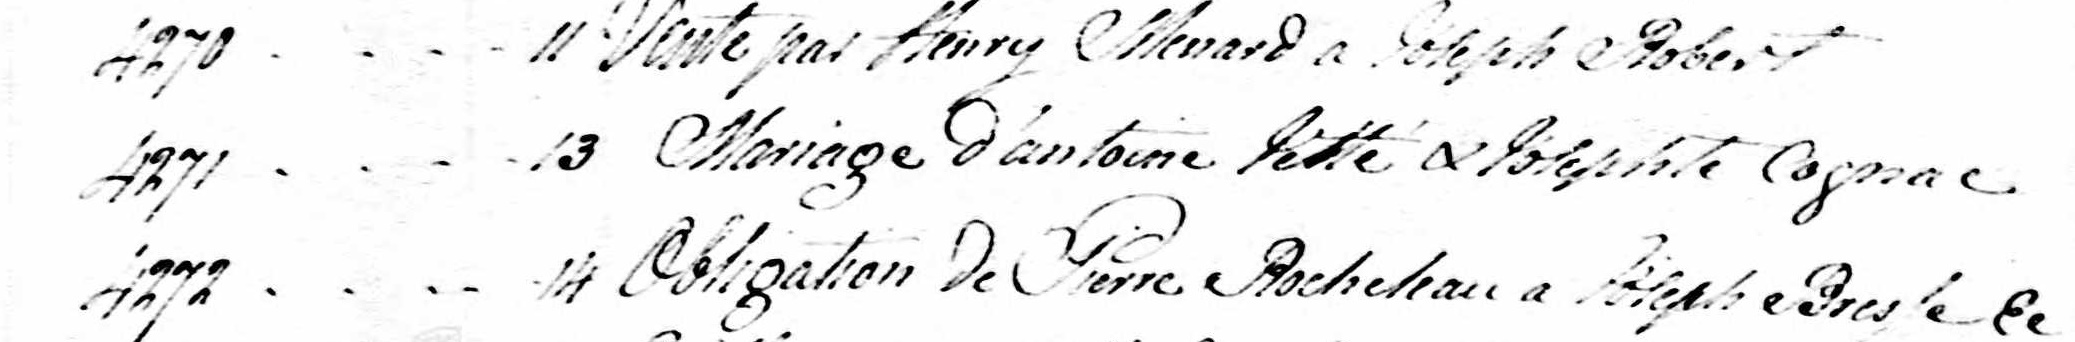 4270 . . . . 11 Vente par Henry Menard a Joseph Robert
4271 . . . . 13 Mariage d'antoine Jetté & Josephte Cognac
4272 . . . . 14 Obligation de Pierre Rocheleau a Joseph